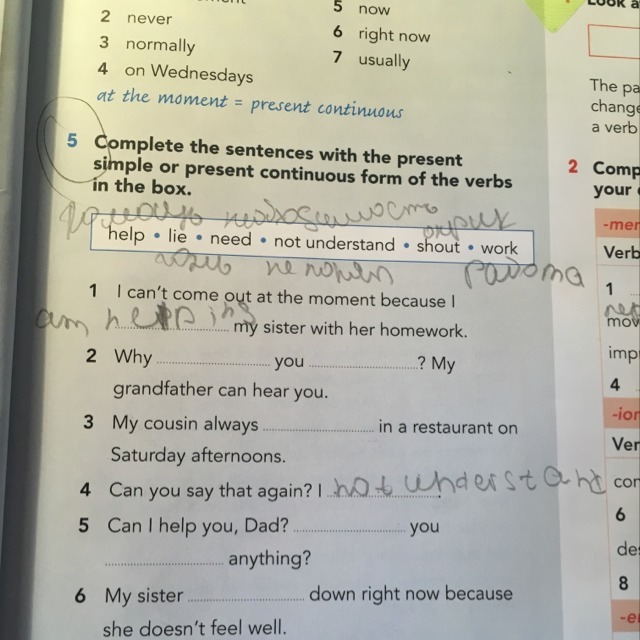 2 never
3 normally
4 on Wednesdays
5 now
6 right now
7 usually
at the moment = present continuous
5 Complete the sentences with the present
simple or present continuous form of the verbs
in the box.
необходимость
help • lie • need • not understand • shout • work
работа
1 I can't come out at the moment because I
am helping my sister with her homework.
2 Why ........ you ........ ? My
grandfather can hear you.
3 My cousin always ........ in a restaurant on
Saturday afternoons.
4 Can you say that again? I not understand.
5 Can I help you, Dad? ........ you
........ anything?
6 My sister ........ down right now because
she doesn't feel well.
Look
The pa
change
a verb
2 Comp
your
-mer
Verb
1
mov
imp
4
-ior
Ver
con
6
de
8
-e